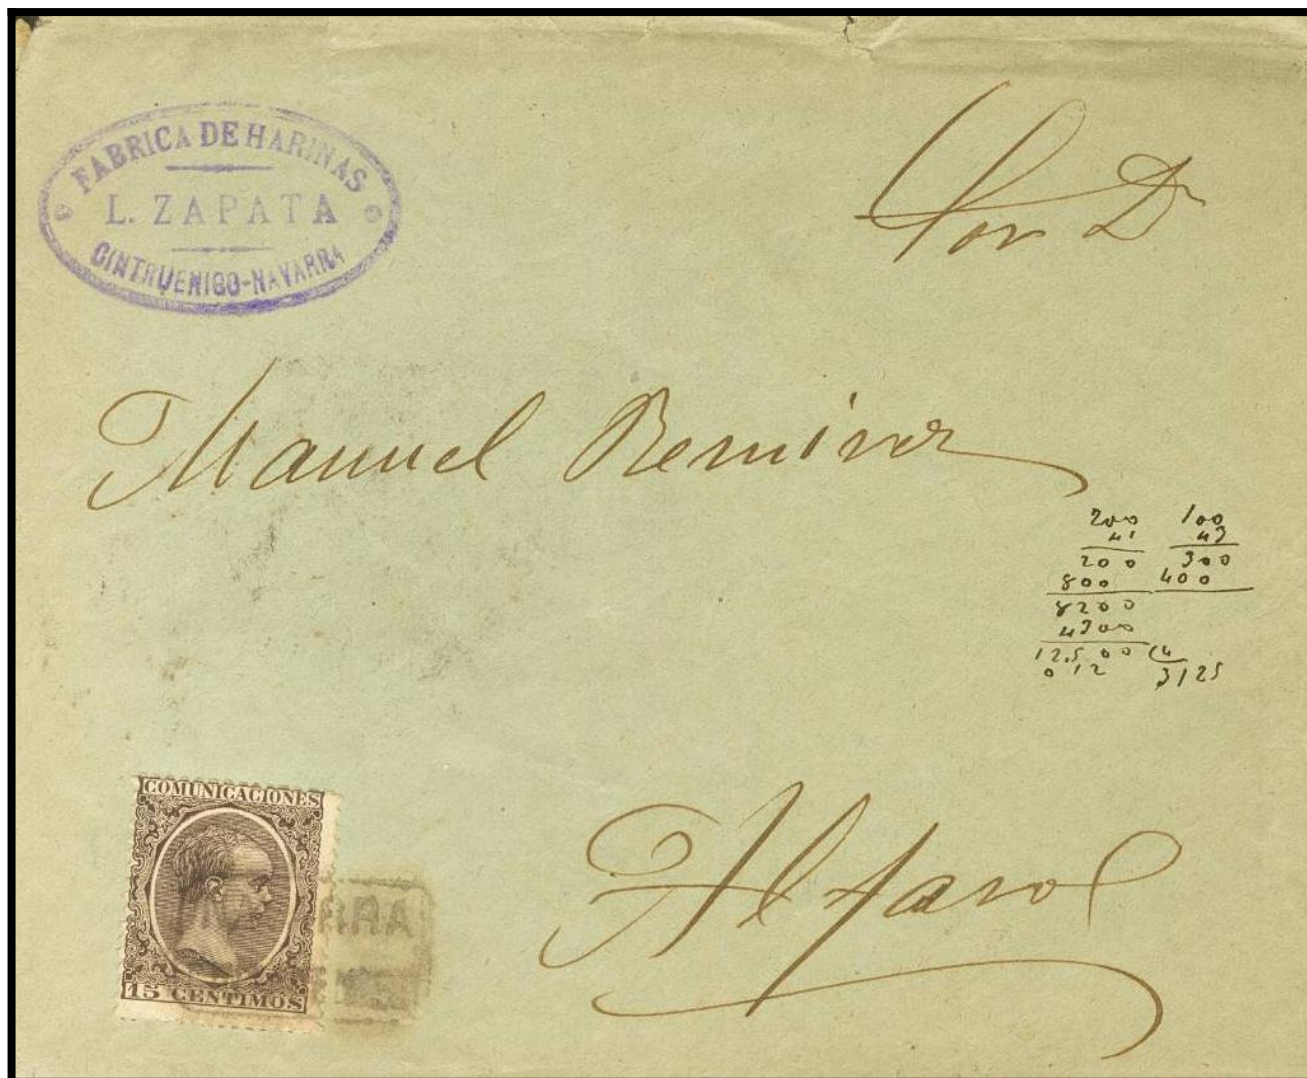 FABRICA DE HARINAS
L. ZAPATA
CINTRUENIGO-NAVARRA
Sor Dn
Manuel Remirez
200 100
41 43
200 300
800 400
8200
4300
12.500 (4
012 3125
Alfaro
COMUNICACIONES
15 CENTIMOS